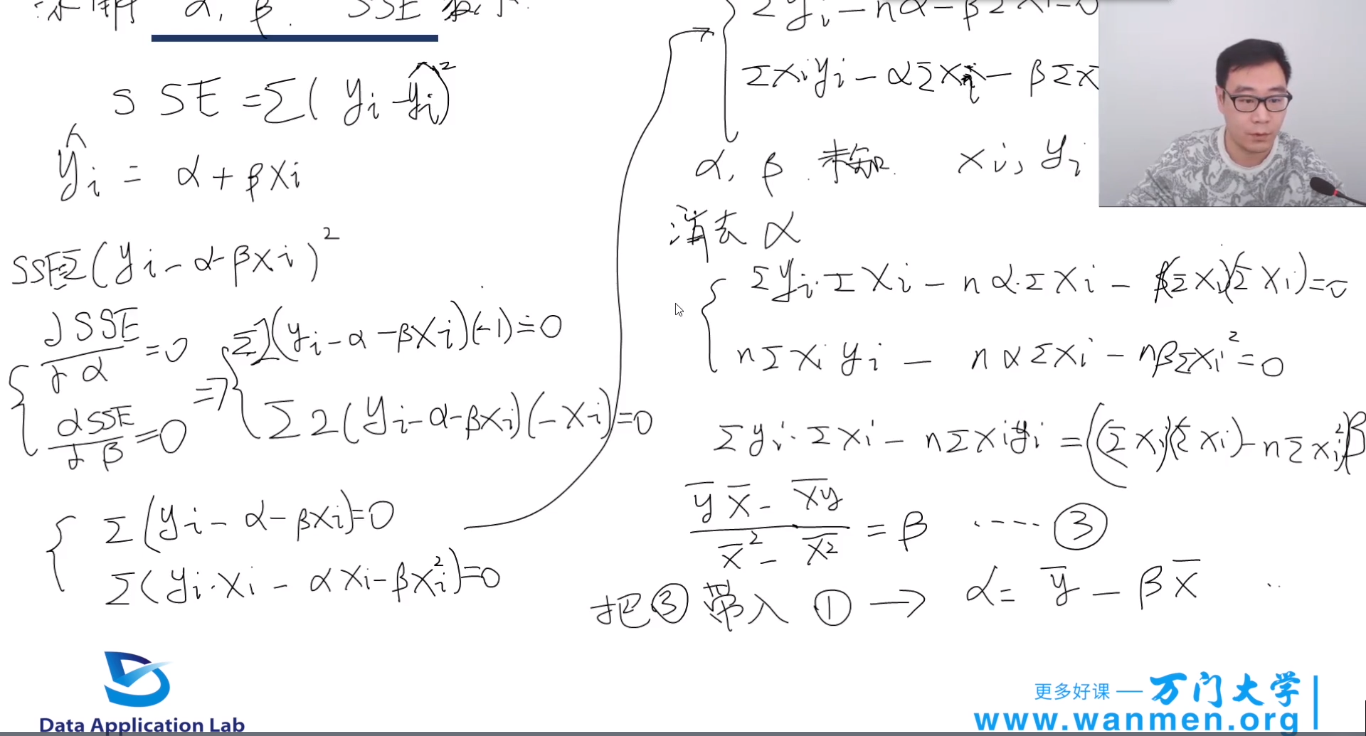 求解 α, β. SSE 最小.
SSE = Σ(yᵢ - ŷᵢ)²
ŷᵢ = α + βxᵢ
SSE=Σ(yᵢ - α - βxᵢ)²
dSSE/dα = 0 => Σ2(yᵢ - α - βxᵢ)(-1) = 0
dSSE/dβ = 0 Σ2(yᵢ - α - βxᵢ)(-xᵢ) = 0
Σ(yᵢ - α - βxᵢ)=0
Σ(yᵢ·xᵢ - αxᵢ - βxᵢ²)=0
Σyᵢ - nα - βΣxᵢ=0
Σxᵢyᵢ - αΣxᵢ - βΣx
α, β 未知. xᵢ, yᵢ
消去 α
Σyᵢ·Σxᵢ - nα·Σxᵢ - β(Σxᵢ)(Σxᵢ)=0
nΣxᵢyᵢ - nαΣxᵢ - nβΣxᵢ²=0
Σyᵢ·Σxᵢ - nΣxᵢyᵢ = ((Σxᵢ)(Σxᵢ) - nΣxᵢ²)β
(y̅ x̅ - x̅y̅)/(x̅² - x̅²) = β ····③
把③带入① → α = y̅ - βx̅ ··
Data Application Lab
更多好课 — 万门大学
www.wanmen.org